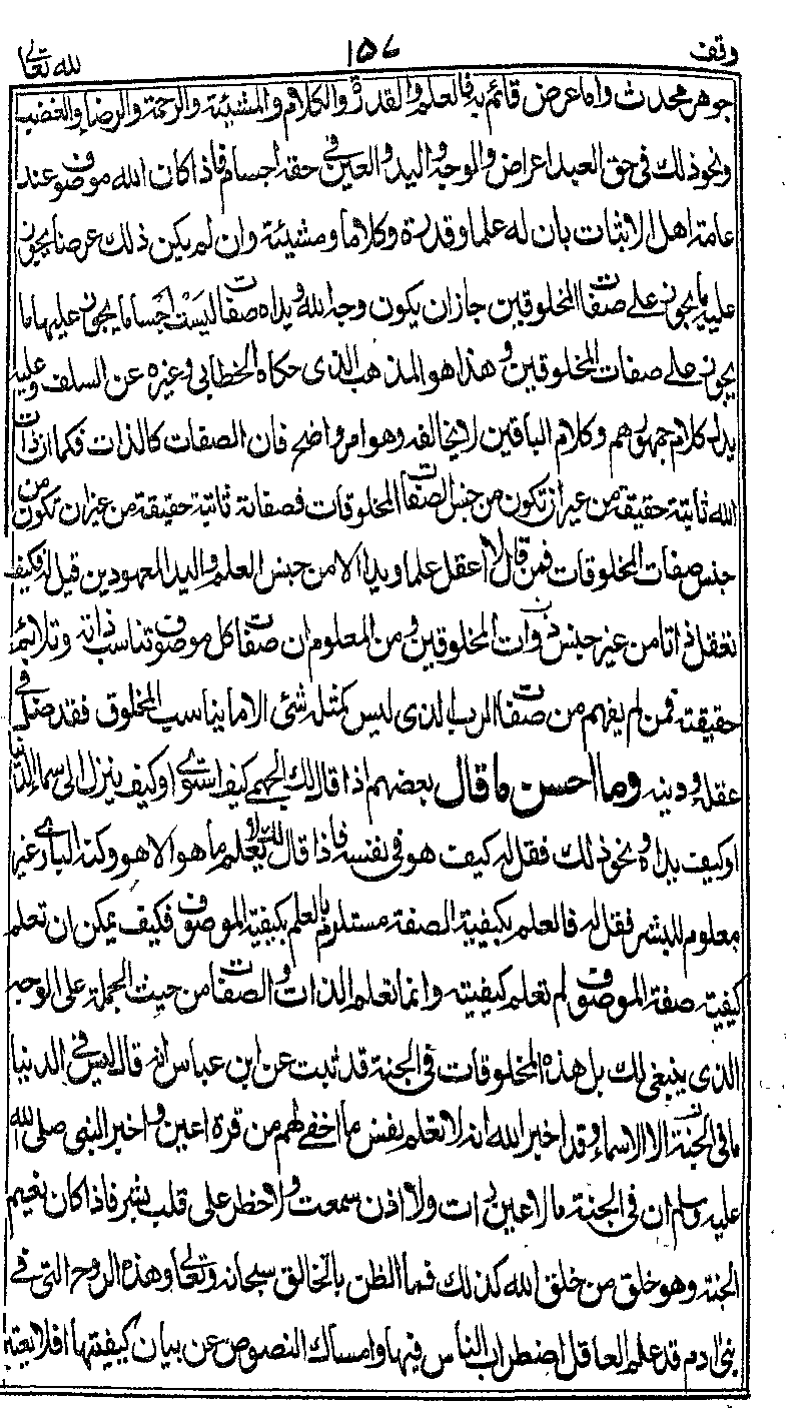 وقف ١٥٧ لله تعالى
جوهر محدث واما عرض قائم به فالعلم والقدرة والكلام والمشيئة والرحمة والرضا والغضب
ونحو ذلك في حق العبد اعراض والوجه واليد والعين في حقه اجسام فاذا كان الله موصوف عند
عامة اهل الاثبات بان له علما وقدرة وكلاما ومشيئة وان لم يكن ذلك عرضا يجوز
عليه ما يجوز على صفات المخلوقين جاز ان يكون وجه الله ويداه صفات ليست اجساما يجوز عليها ما
يجوز على صفات المخلوقين وهذا هو المذهب الذي حكاه الخطابي وغيره عن السلف وعليه
يدل كلام جمهورهم وكلام الباقين لا يخالفه وهو امر واضح فان الصفات كالذات فكما ان ذات
الله ثابتة حقيقة من غير ان تكون من جنس الصفات المخلوقات فصفاته ثابتة حقيقة من غير ان تكون من
جنس صفات المخلوقات فمن قال لا اعقل علما ويدا الا من جنس العلم واليد المعهودين قيل له فكيف
تعقل ذاتا من غير جنس ذوات المخلوقين ومن المعلوم ان صفات كل موصوف تناسب ذاته وتلائم
حقيقته فمن لم يفهم من صفات الرب الذي ليس كمثله شئ الا ما يناسب المخلوق فقد ضل في
عقله ودينه وما احسن ما قال بعضهم اذا قال لك الجهمي كيف استوى او كيف ينزل الى سماء الدنيا
او كيف يداه ونحو ذلك فقل له كيف هو في نفسه فاذا قال لك لا يعلم ما هو الا هو وكنه الباري غير
معلوم للبشر فقل له فالعلم بكيفية الصفة مستلزم بالعلم بكيفية الموصوف فكيف يمكن ان تعلم
كيفية صفة الموصوف لم تعلم كيفيته وانما تعلم الذات والصفات من حيث الجملة على الوجه
الذي ينبغي لك بل هذه المخلوقات في الجنة قد ثبت عن ابن عباس انه قال ليس في الدنيا
ما في الجنة الا الاسماء وقد اخبر الله انه لا تعلم نفس ما اخفي لهم من قرة اعين واخبر النبي صلى الله
عليه وسلم ان في الجنة ما لا عين رات ولا اذن سمعت ولا خطر على قلب بشر فاذا كان نعيم
الجنة وهو خلق من خلق الله كذلك فما الظن بالخالق سبحانه وتعالى وهذه الروح التي في
بني ادم قد علم العاقل اضطراب الناس فيها وامساك النصوص عن بيان كيفيتها افلا يعتبر